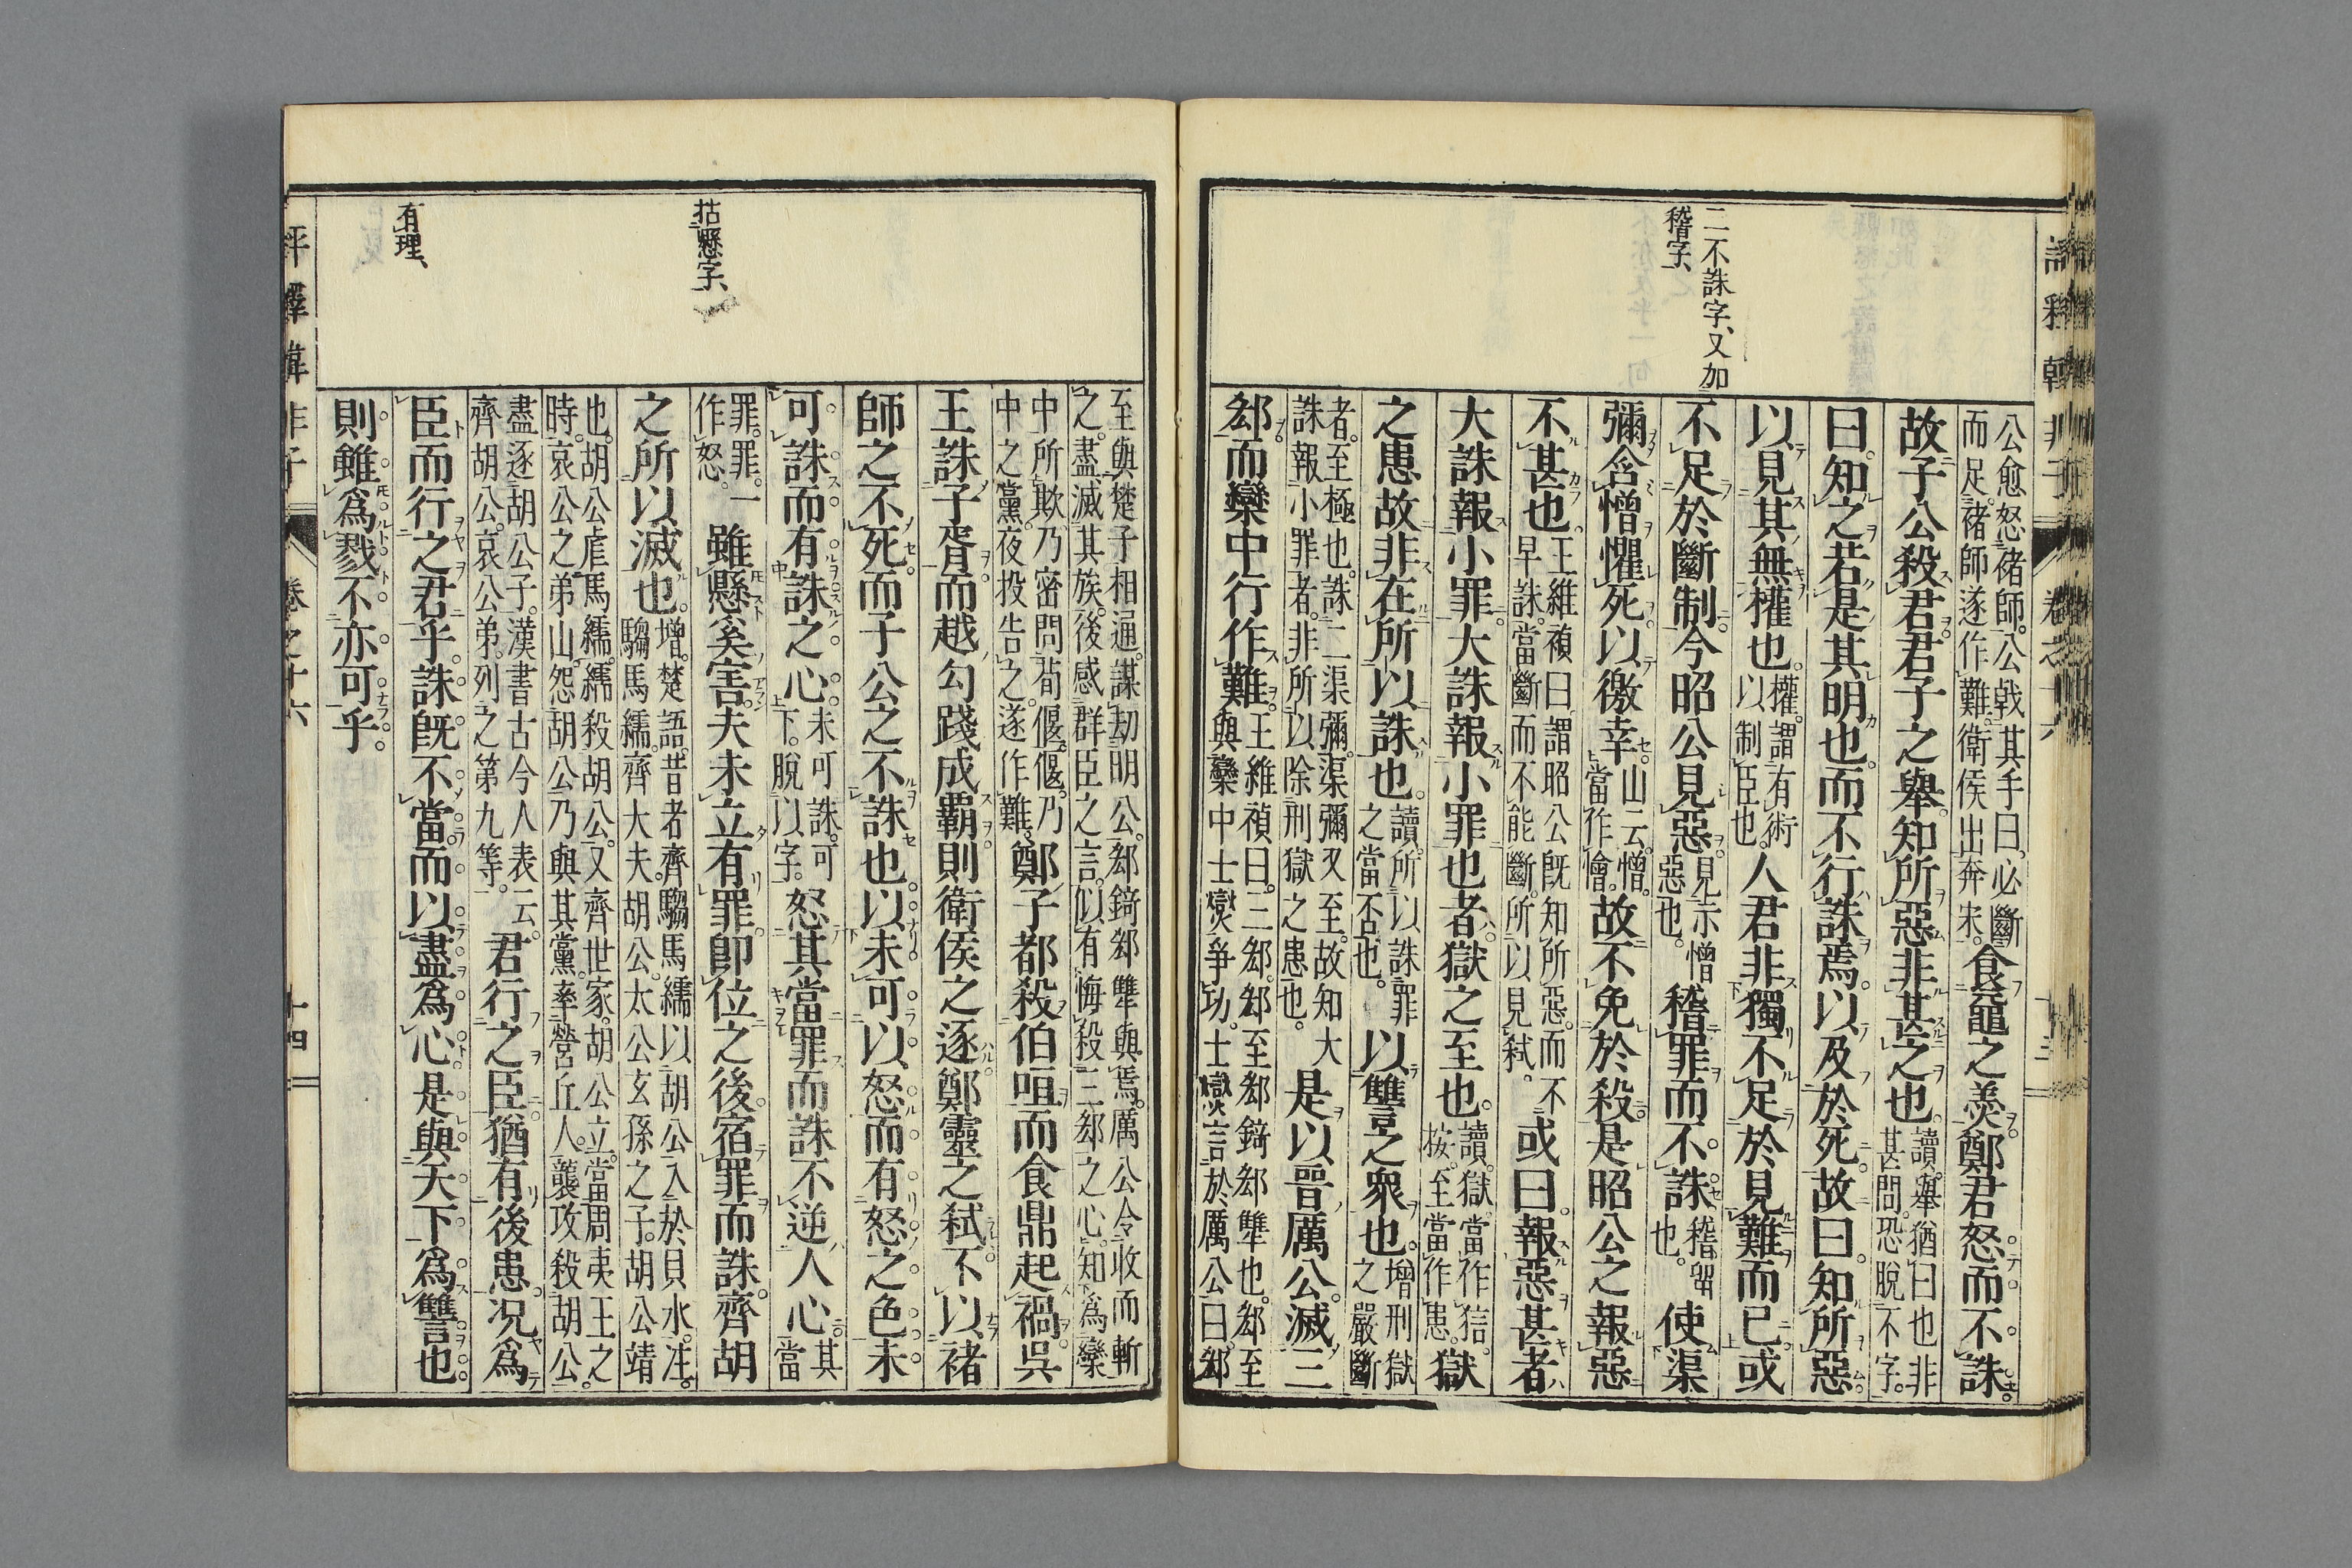 二不誅字、又加
稽字、
公愈怒。褚師。公戟其手曰。必斷
而足。褚師遂作難。衛侯出奔宋。食黿之羮。鄭君怒而不誅。
故子公殺君。君子之舉知所惡。非甚之也。讀。舉猶曰也非
甚問。恐脫不字。
曰。知之若是其明也。而不行誅焉。以及於死。故曰。知所惡。
以見其無權也。權。謂有術
以制臣也。人君非獨不足於見難而已。或
不足於斷制。今昭公見惡。見示憎
惡也。稽罪而不誅。稽留
也。使渠
彌含憎懼死以徼幸。山云。憎。
當作憎。故不免於殺。是昭公之報惡
不甚也。王維禎曰。謂昭公既知所惡。而不
早誅。當斷而不能斷。所以見弒。或曰。報惡甚者。
大誅報小罪。大誅報小罪也者。獄之至也。讀。獄當作㹜。
按。至當作患。獄
之患。故非在所以誅也。讀。所以誅罪
之當否也。以讐之衆也。增刑獄
之嚴斷
者。至極也。誅二渠彌。渠彌又至。故知大
誅報小罪者。非所以除刑獄之患也。是以晉厲公滅三
郄。而欒中行作難。王維禎曰。三郄。郄至郄錡郄犨也。郄至
與欒中士燮爭功。士燮言於厲公曰。郄
括懸字、
有理、
至與楚子相通。謀刧明公。郄錡郄犨與焉。厲公令收而斬
之。盡滅其族。後感群臣之言。似有悔殺三郄之心。知爲欒
中所欺。乃密問荀偃。偃。乃
中之黨。夜投告之。遂作難。鄭子都殺伯咺。而食鼎起禍。呉
王誅子胥。而越勾踐成覇。則衛侯之逐。鄭靈之弒。不以褚
師之不死。而子公之不誅也。以未可以怒。而有怒之色。未
可誅。而有誅之心。未可誅。可
下。脫以字。怒其當罪。而誅不逆人心。其
當
罪。罪。一
作怒。雖懸奚害。夫未立有罪。卽位之後。宿罪而誅。齊胡
之所以滅也。增。楚語。昔者齊騶馬繻以胡公入於貝水。注。
騶馬繻。齊大夫。胡公。太公玄孫之子。胡公靖
也。胡公虐馬繻。繻殺胡公。又齊世家。胡公立。當周夷王之
時。哀公之弟山。怨胡公。乃與其黨。率營丘人。襲攻殺胡公。
盡逐胡公子。漢書古今人表云。
齊胡公。哀公弟。列之第九等。君行之臣。猶有後患。况爲
臣而行之君乎。誅旣不當。而以盡爲心。是與天下爲讐也。
則雖爲戮不亦可乎。
卷之十六
十四